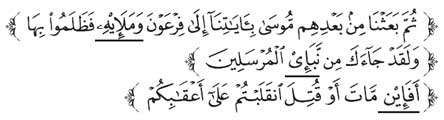 ﴿ ثُمَّ بَعَثْنَا مِنۢ بَعْدِهِم مُّوسَىٰ بِـَٔايَـٰتِنَآ إِلَىٰ فِرْعَوْنَ وَمَلَإِي۟هِۦ فَظَلَمُوا۟ بِهَا ﴾
﴿ وَلَقَدْ جَآءَكَ مِن نَّبَإِى۟ ٱلْمُرْسَلِينَ ﴾
﴿ أَفَإِي۟ن مَّاتَ أَوْ قُتِلَ ٱنقَلَبْتُمْ عَلَىٰٓ أَعْقَـٰبِكُمْ ﴾